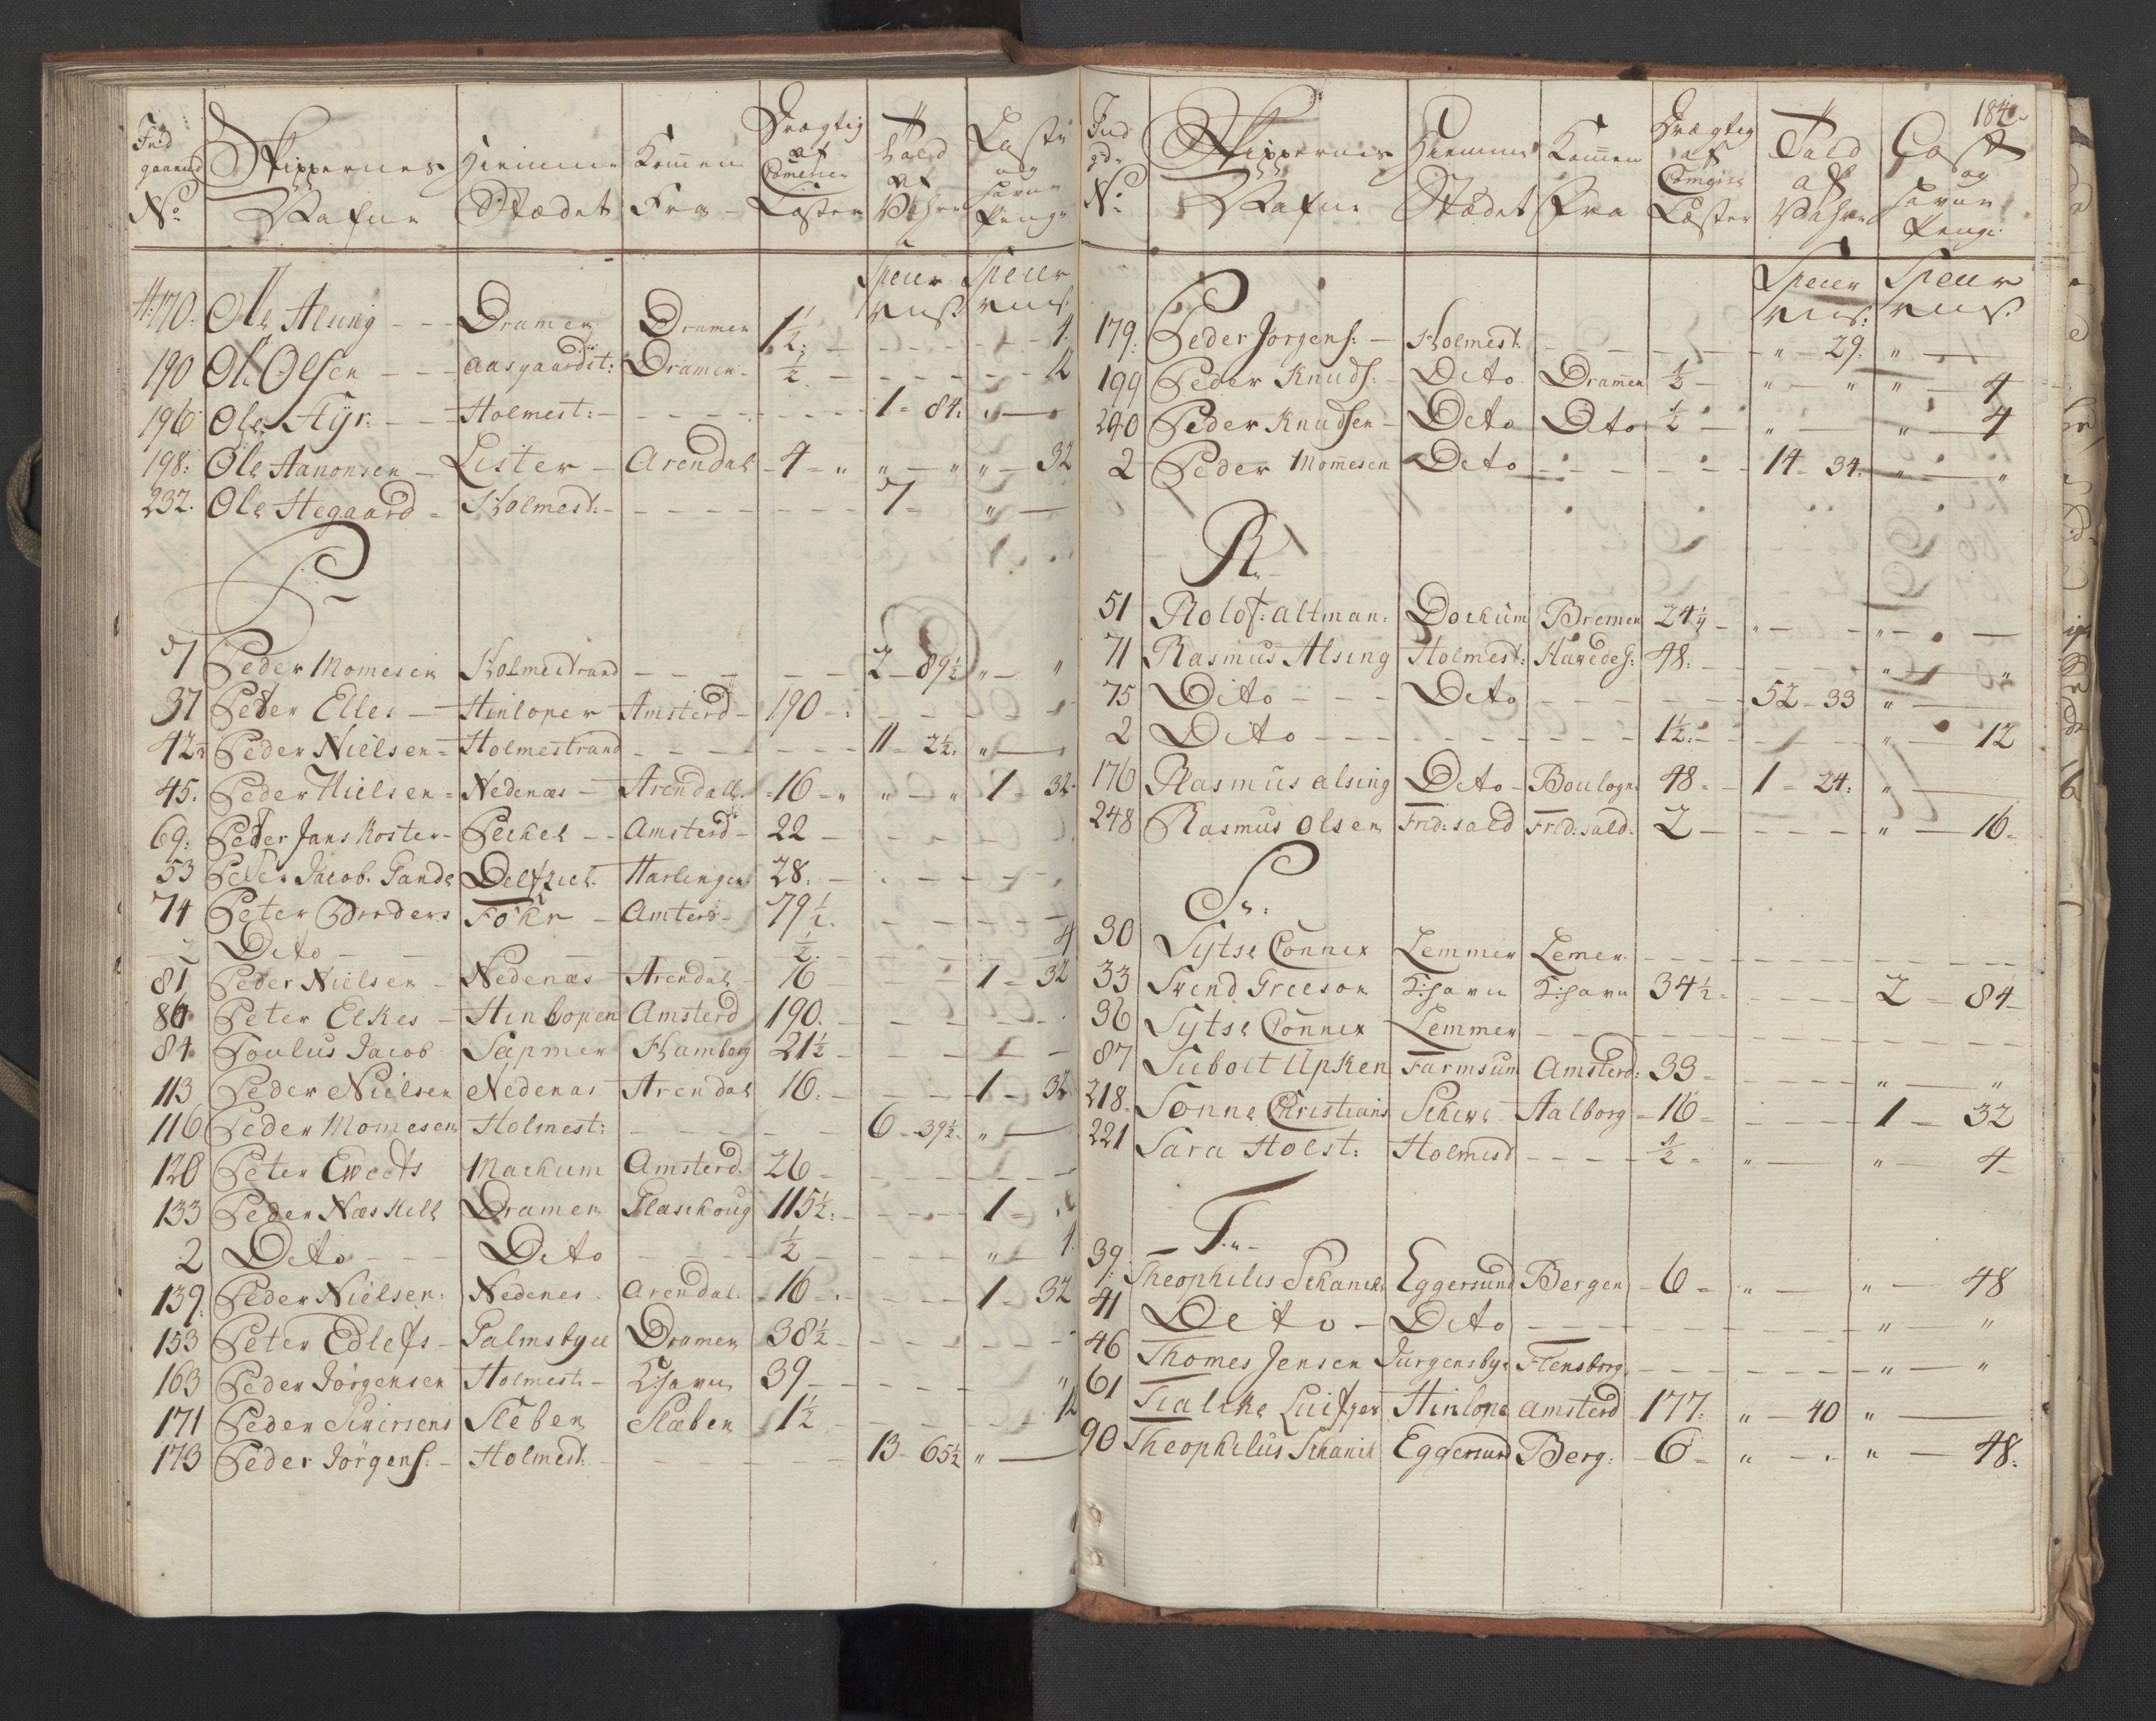 Ind gaaend No | Skippernes Nafne | Hiemme Stædet | Komen Fra | Drægtig af Comerce Læster | Told af Vahre | Læste og Havne Penge
Specr Specr
170. Ole Alsing - - Dramen Dramen 1½: - - - - - 4.
190 Ol: Olsen - - - Aasgaardst: Dramen - ½ - - - - - 12
196 Ole Styr: - - Holmest: - - - - - - - 1 - 84: „ —
198: Ole Aanonsen - Lister - Arendal - 4 - „ „ — „ „ — 32
232. Ole Hegaard - Holmest: - - - - - - - 7 - „ —
P
7 Peder Momesen Holmestrand - - - - - 2 - 89½ „ — „
37 Peter Elles - Hinloper Amsterd - 190 - - - - -
42 Peder Nielsen - Holmestrand - - - - - - 11 - 2½. „ —
45. Peder Nielsen - Nedenæs - Arendall. - 16 - „ „ — „ 1 - 32
69: Peter Jans Koster - Peckel - - Amsterd - 22 - - - - -
53 Peter Jacob. Pande Delfziel. Harlingen 28. - - - - -
74 Peter Broders Föhr - Amters - 79½. - - - -
2 Dito - - - - ½. - - - 4
81 Peder Nielsen - Nedenæs - Arendal - 16 - - - - 1 - 32
80 Peter Elkes - Hinlopen Amsterd 190. - - - - -
84 Poulus Jacob Sapmer Hamborg 21½ - - - - -
113 Peder Nielsen Nedenas Arendal 16. - - - - 1 - 32
116 Peder Momesen Holmest: - - - - - 6 - 39½. „ —
120 Peter Eweets Mackum Amsterd. 26 - - - - -
133 Peder Næs Kell Dramen Glaschoug 115½: - - - - 1 -
2 Dito - - - Dito - - - ½ - - - - „ — 4.
139: Peder Nielsen: Nedenes. Arendal. - 16 - - - - - 1 - 32
153 Peter Edlefs - Galmsbyll Dramen 38½ - - - - -
163 Peder Jörgensen Holmest: - K:havn 39 - - - - - „
171 Peder Siversens Sleben Slæben 1½ - - - - - 12
173 Peder Jörgens: - Holmest: - - - - - 13 - 65½ „ —
184
Ind gd: No: | Skippernes Nafne | Hiemme Stædet | Komen Fra | Drægtig af Comerce Læster | Told af Vahre | Læst og Havne Penge
Specr Specr
179: Peder Jorgens: - Holmest: - - - - - „ — 29. „ —
199 Peder Knuds: - Dito Dramen ½ - „ — „ „ — 4
240 Peder Knudsen - Dito Dito ½ - „ — „ — 4
2 Peder Momesen Dito - - - - - 14 - 34. „ — „
R
51 Rolof: Altman: Dockum Bremen 24½ - „ — - „ —
71 Rasmus Alsing Holmest: 48: - - - - - „ — „
75 Dito - - - Dito - - - - - - 52 - 33 „ —
2 Dito - - - - - - - - 1½: - - - - - „ — 12
176 Rasmus Alsing Dito - Boulogn: 48 - - 1 - 24: „ —
248 Rasmus Olsen Frid:sald Frid:sald: 2 - - - - - „ — 16 -
S:
30 Sytse Connex Lemmer Lemer - - - - - - - -
33 Svend Greeson K:havn K:havn 34½ - - - - 2 - 84 -
36 Sytse Connex Lemmer - - - - - - - -
87 Siebolt Upken Farmsum Amsterd: 33 - - - - - „ — „
218. Sonne Christians Aalborg - 16 - - - - 1 - 32
221 Sara Holst: Holmesd - - - - ½ - „ — „ — 4 -
T.
39: Theophilis Schanche Eggersund Bergen - 6 - „ — „ — 48
41 Dito - Dito - - - - - - - „ — „
46 Thomes Jensen Jurgensbye Flensborg. - - - - - - „ — „
61 Tialcke Luitzer Hinlope Amsterd 177: „ — 40 „ —
90 Theophilus Schanch Eggersund Berg: - 6 - „ — . „ — 48: